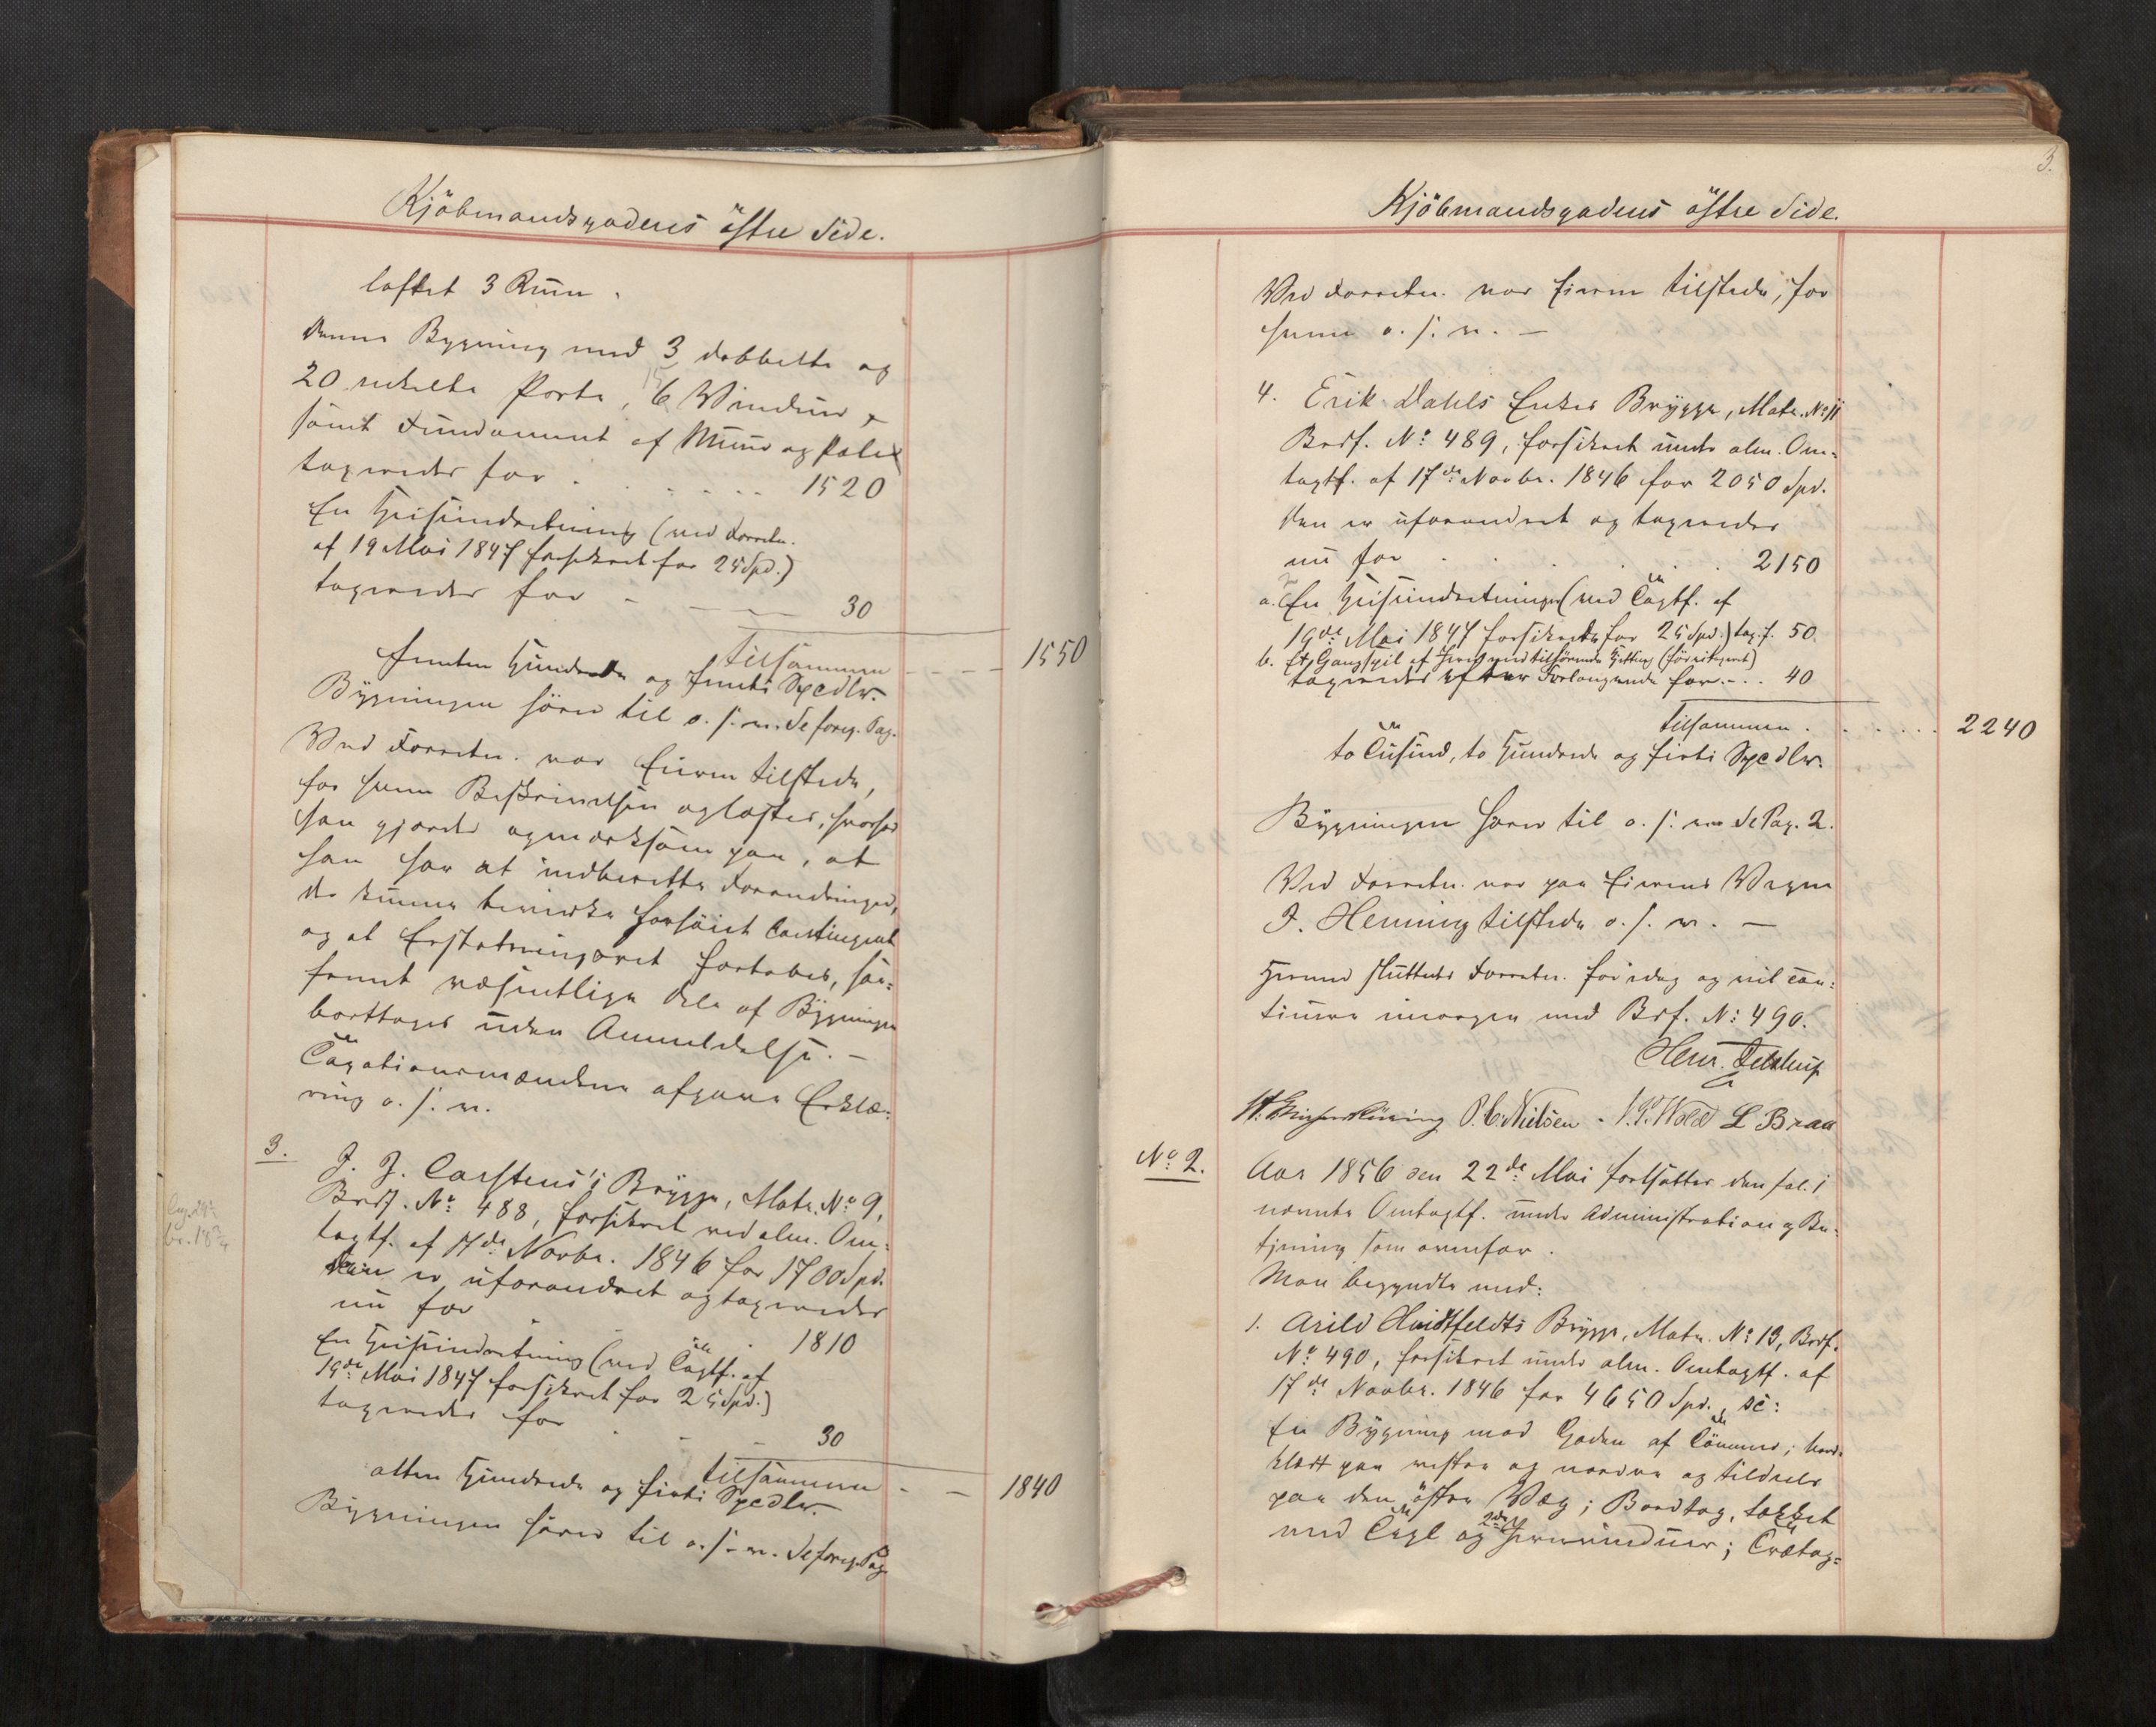 Kjöbmandsgadens östre Side.
loftet 3 Rum.
Denne Bygning med 3 dobbelte og
20 enkelte Porte, 6 Vinduer
samt Fundament af Muur og Pæle
taxeredes for . . . . . . 1520
En Heiseindretning (ved Forretn.
af 19 Mai 1847 forsikret for 25 Spd.)
taxeredes for - - - 30
tilsammen - - - 1550
femten Hundrede og femti Spedlr.
Bygningen hörer til o. s. v. Se foreg. Pag.
Ved Forretn. var Eieren tilstede,
for hvem Beskrivelsen oplæstes, hvorhos
han gjordes opmærksom paa, at
han har at indberette Forandringer,
der kunne bevirke forhöiet Contingent
og at Erstatningsret fortabes, saa-
fremt væsentlige Dele af Bygningen
borttages uden Anmeldelse. -
Taxationsmændene afgave Erklæ-
ring o. s. v.
3. J. J. Carstens's Brygge, Matr. No 9,
Brdf. No 488, forsikret ved alm. Om-
taxtf. af 17de Novbr. 1846 for 1700 Spd.
Den er uforandret og taxeredes
nu for . . 1810
En Heiseindretning (ved Taxtf. af
19de Mai 1847 forsikret for 25 Spd.)
taxeredes for . - - 30
tilsammen - - 1840
atten Hundrede og firti Spedlr.
Bygningen hörer til o. s. v. Se foreg. Pag.
3.
Kjöbmandsgadens östre Side.
Ved Forretn. var Eieren tilstede, for
hvem o. s. v. -
4. Erik Dahls Enkes Brygge, Matr. No 11
Brdf. No 489, forsikret under alm. Om-
taxtf. af 17de Novbr. 1846 for 2050 Spd.
Den er uforandret og taxeredes
nu for . . . . 2150
a. En Heiseindretninger (ved Taxtf. af
19de Mai 1847 forsikrede for 25 Spd.) tax. f. 50.
b. Et Gangspil af Jern med tilhörende Kjetting
taxeredes efter Forlangende for - . . 40
tilsammen . . . . . 2240
to Tusind, to Hundrede og firti Spedlr.
Bygningen hörer til o. s. v. Se Pag. 2.
Ved Forretn. var paa Eierens Vegne
J. Henning tilstede o. s. v. -
Hermed sluttedes Forretn. for idag og vil con-
tinuere imorgen med Brf. No 490.
Henr.
P. C. Nielsen - Wold L Braa
No 2. Aar 1856 den 22de Mai fortsattes den fol. 1
nævnte Omtaxtf. under Administration og Be-
tjening som ovenfor.
Man begyndte med:
1. Arild Huitfeldts Brygge, Matr. No 13, Brdf.
No 490, forsikret under alm. Omtaxtf. af
17de Novbr. 1846 for 4650 Spd., sc:
En Bygning mod Gaden af Tömmer; bord-
klædt paa vestre og nordre og tildeels
paa den östre Væg; Bordtag, tækket
med Tegl og 2de Jernvinduer; Trætag-